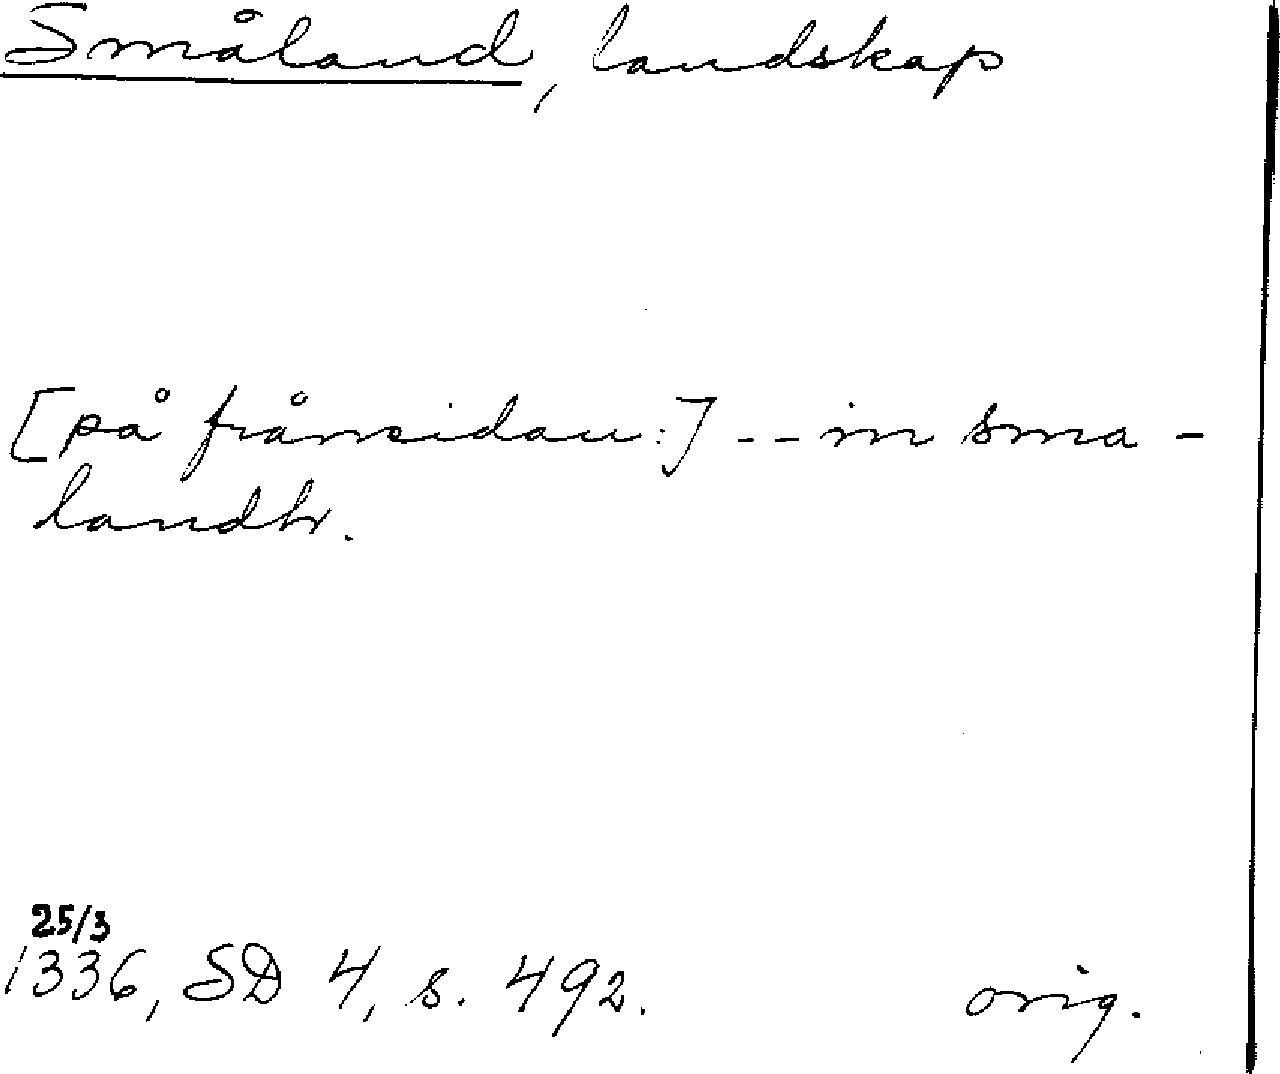 Småland, landskap
[på frånsidan:] -- in sma-
landh.
25/3
1336, SD 4, s. 492. orig.